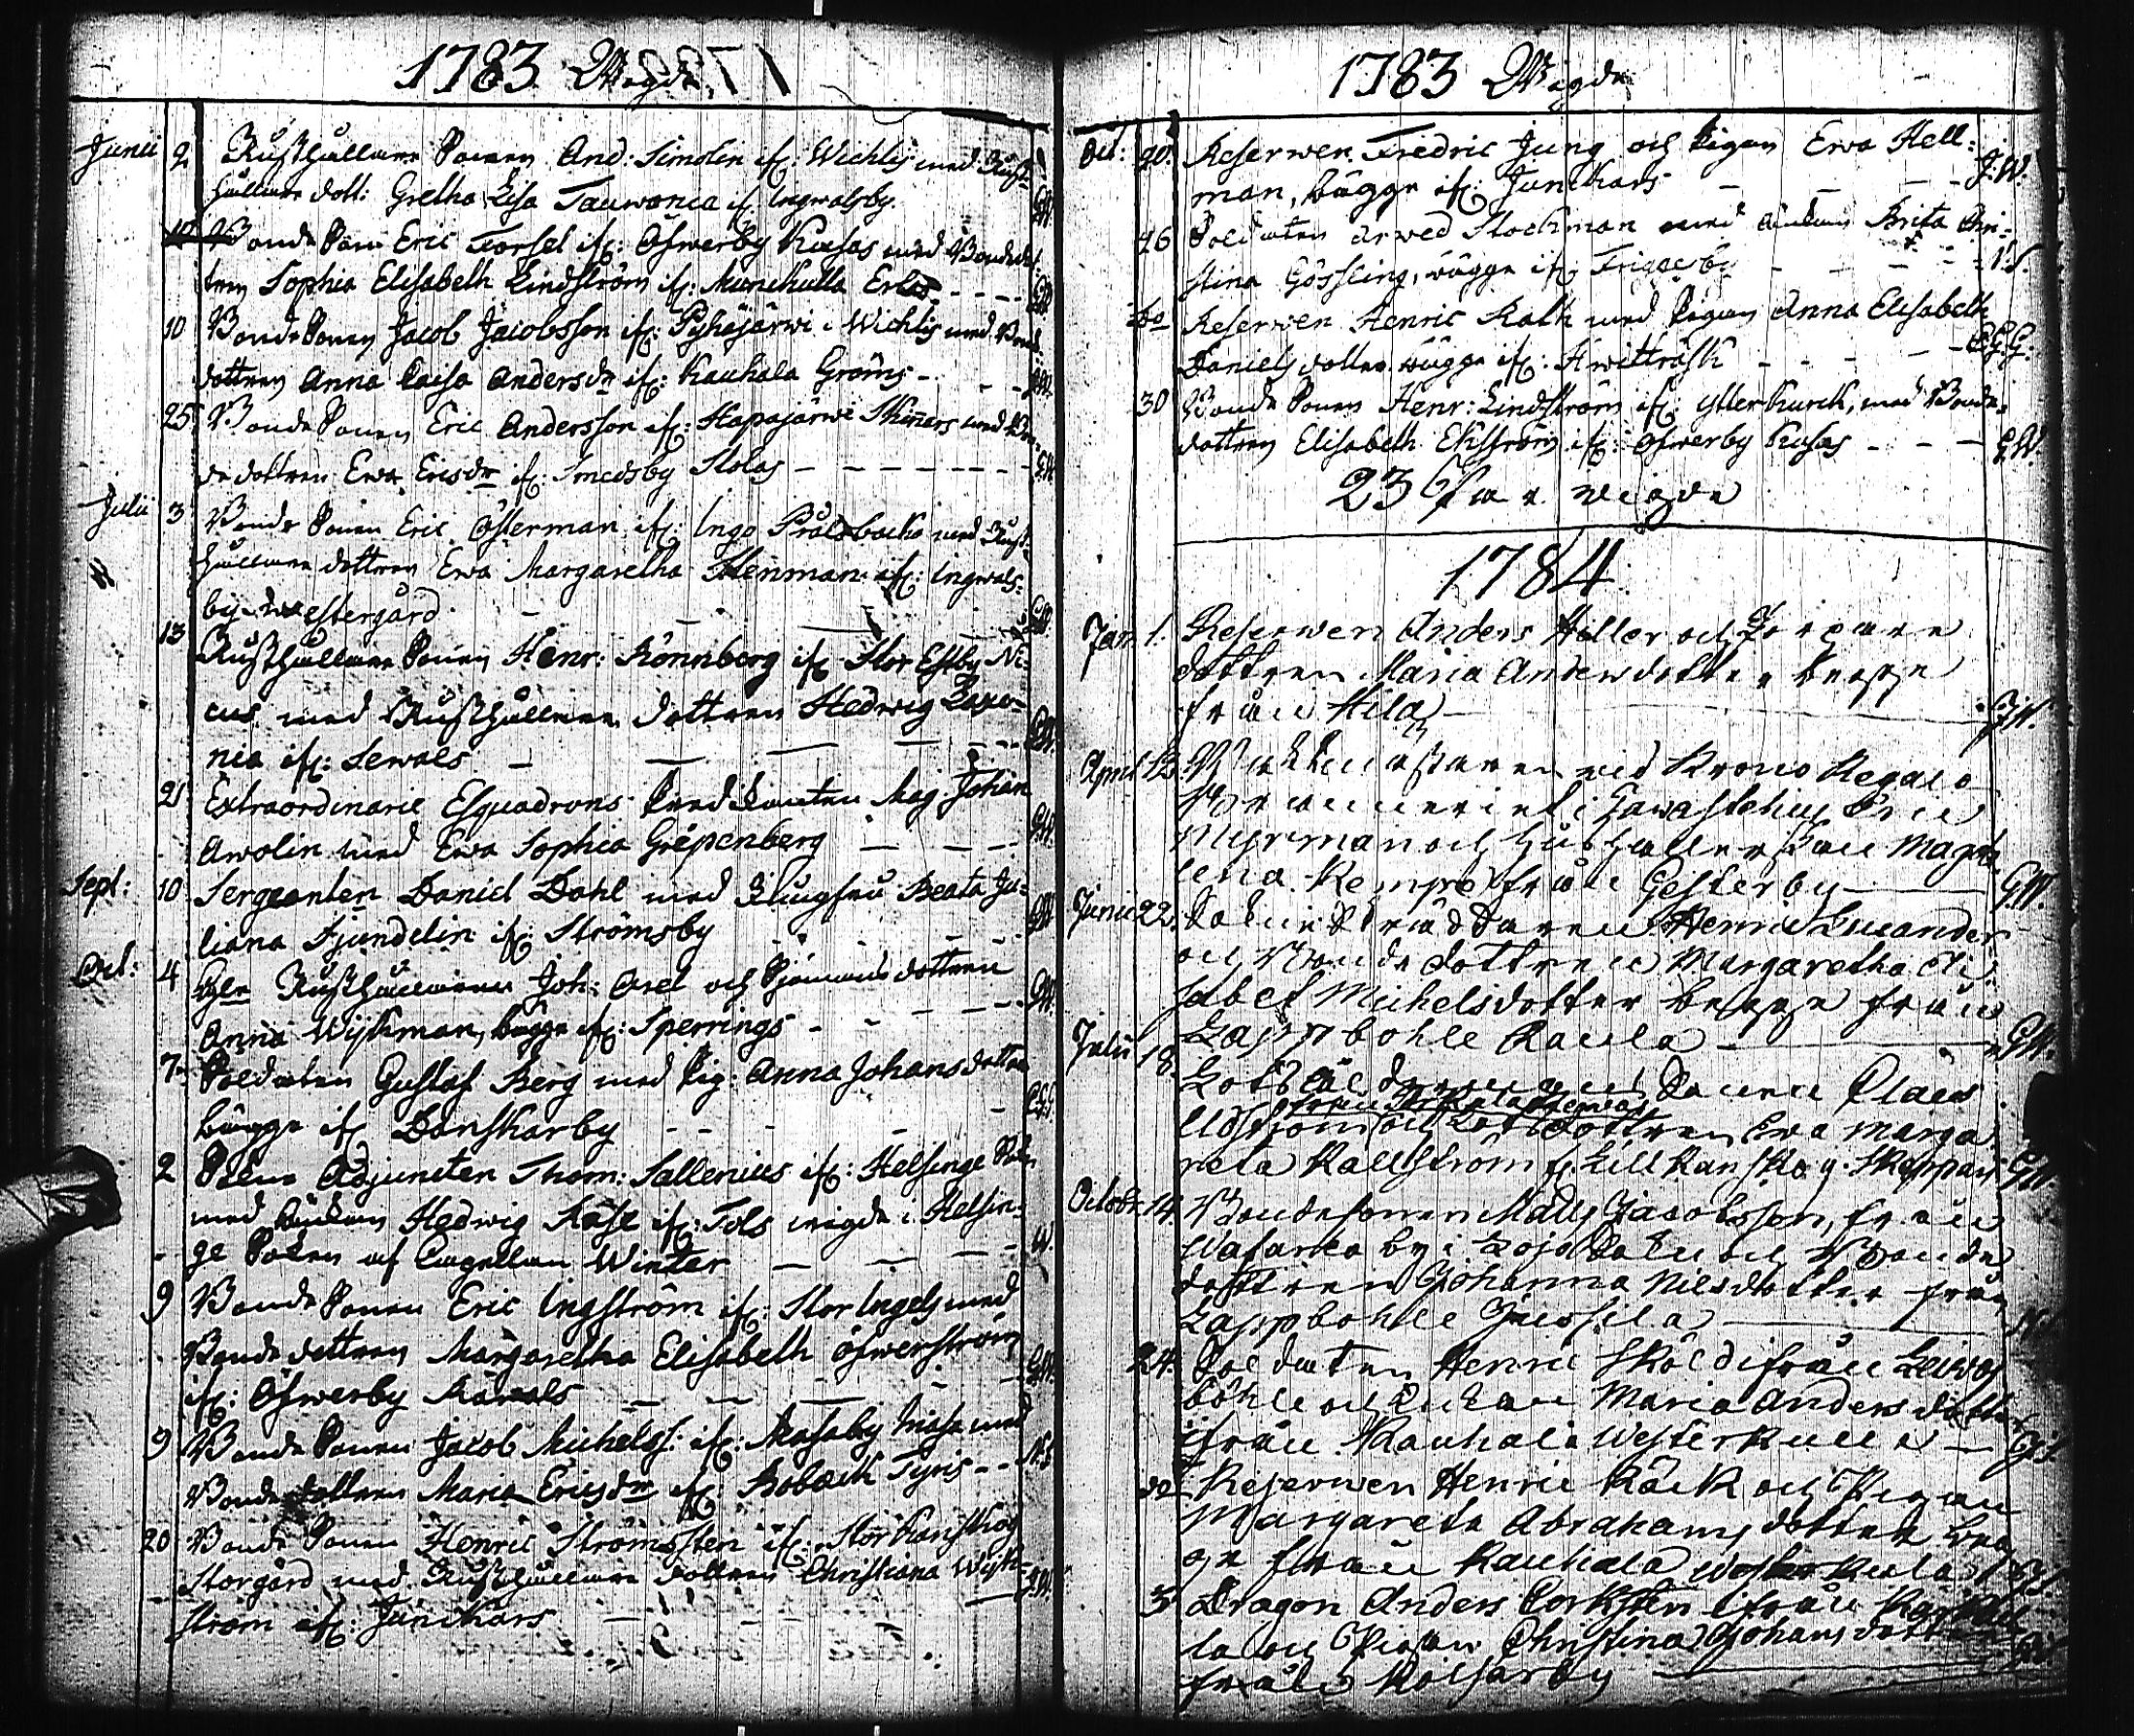 1783 Wigde
Junii 2 Rusthållare Sonen And: Simolin ifr: Wichtis med Rust-
hållare dott: Gretha Lisa Tauwonia ifr Ingwalsby.
10 Bonde Son Eric Forsel ifr: Öfwerby Kusas med Bondedot-
tren Sophia Elisabeth Lindström ifr: Munckulla Erlas
10 Bonde Sonen Jacob Jacobsson ifr: Pyhäjärwi i Wichtis med Bonde
dottren Anna Caisa Andersdr ifr: Kauhala Gröms
25 Bonde Sonen Eric Andersson ifr: Hapajärwi med Bon-
de dottren Ewa Ericsdr ifr: Smedsby Stolas
Julii 3 Bonde Sonen Eric Österman ifr: Ingo Prålsbacka med Rust-
hållare dottren Ewa Margaretha Stenman ifr: Ingwals-
by Westergård
13 Rusthållare Sonen Henr: Rönnberg ifr Stor Estby Ni-
cus med Rusthållare dottren Hedwig
nia ifr: Sewals
21 Extraordinarie Esquadrons Predikanten Mag. Johan
Awolin med Ewa Sophia Gripenberg GW.
Sept: 10 Sergeanten Daniel Dahl med Jungfru Beata Ju-
liana Fjundelin ifr: Strömsby
Oct: 4 Rusthållaren Joh: Axel och Sjömans dottren
Anna Wijkman, bägge ifr: Sperrings GW.
7 Soldaten Gustaf Berg med Pig: Anna Johansdotter
bägge ifr Danskarby
2 Adjuncten Thom: Sallenius ifr: Helsinge Sokn
med Änkan Hedwig Kåse ifr: Tols wigde i Helsin-
ge Soken af Capellan Winter W.
9 Bonde Sonen Eric Ingström ifr: Stor Ingels med
Bonde dottren Margaretha Elisabeth Öfwerström
ifr: Öfwerby GW.
9 Bonde Sonen Jacob Michelss: ifr: Masaby med
Bonde dottren Maria Ericsdr ifr: Bobäck Tyris
20 Bonde Sonen Henric Strömsten ifr: Stor Kanskog
Storgård med Rusthållare dottren Christiana Wijk-
ström ifr: Junckars
1783 Wigde
Oct: 20. Reserwen Fredric Jung och Pigan Ewa Hell-
man, bägge ifr: Junckars G.W.
26 Soldaten Arwed Stockman med Änkan Brita Chri-
stina Gössling, bägge ifr: Friggesby
do Reserwen Henric Rath med Pigan Anna Elisabeth
Daniels dotter bägge ifr: Hwitträsk
30 Bonde Sonen Henr: Lindström ifr: Ytterkurck, med Bonde-
dottren Elisabeth Ekström ifr: Öfwerby Kusas G.W.
23 Par vigde
1784
Jan. 1. Reserwen Anders Heller och
dottren Maria Andersdotter begge
från Hila
April 13 wid Krono
i Tawastehus Eric
Myrman och Hushållerskan Magda-
lena Kempe från Gesterby GW.
Junii 22. Sokneskräddaren Henric Lucander
och Bonde dottren Margaretha Eli-
sabet Michelsdotter begge från
Lappbohle Kaula GW.
Julii 18. Sonen Claës
och Dottren Ewa Marga
reta Källström fr. Lill Kanskog Skeppars GW.
Octobr. 14. Bondesonen Matts Jacobsson, från
by i Lojo Sokn och Bonde
dottren Johanna Nilsdotter från
Lappbohle Jussila
24. Soldaten Henric Sköld ifrån
böhle och Änkan Maria Andersdotter
ifrån Kauhala Westerkulla
do Reserwen Henric Räck och Pigan
Margareta Abrahamsdotter beg-
ge från Kauhala Westerkulla
3 Dragon Anders Corksten ifrån
la och Pigan Christina Johansdotter
från Kolsarby